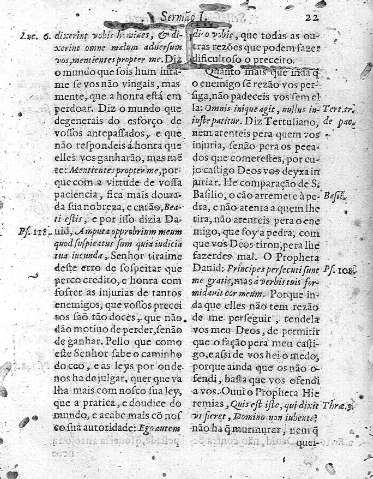 Sermão I.
22
Luc. 6.
dixerint vobis homines, & di-
xerint omne malum aduersum
vos, mentientes propter me. Diz
o mundo que fois hum infa-
me se vos não vingais, mas
mente, que a honta está em
perdoar. Diz o mundo que
degenerais do esforço de
vossos antepassados, e que
não respondeis á honra que
elles vos ganharão, mas mẽ
te: Mentientes propter me, por-
que com a virtude de vossa
paciencia, fica mais doura-
da sua nobreza, e então, Bea-
ti estis, e por isso dizia Da
Ps. 118.
uid, Amputa opprobrium meum
quod suspicatus sum quia iudicia
tua iucunda, Senhor tiraime
deste erro de sospeitar que
perco credito, e honra com
sofrer as injurias de tantos
enemigos, que vossos precei
tos saõ taõ doces, que não
dão motiuo de perder, senão
de ganhar. Pello que como
este Senhor sabe o caminho
do ceo, e as leys por onde
nos ha de julgar, quer que va
lha mais com nosco sua ley,
que a pratica, e doudice do
mundo, e acabe mais cõ nos
co sua autoridade: Ego autem
dico vobis, que todas as ou-
tras rezões que podem fazer
dificultoso o preceito.
Quanto mais que inda q̃
o enemigo sẽ rezão vos per-
siga, não padeceis vos sem el
la: Omnis inique agit, nullus in-
iuste patitur. Diz Tertuliano,
Tert. tr.
de pae.
nem atenteis pera quem vos
injuria, senão pera os pecca-
dos que cometestes, por cu-
jo castigo Deos vos deyxa in
juriar. He comparação de S.
Basilio, o cão arremete á pe-
Basil.
dra, e não atenta a quem lhe
tira, não atenteis pera o ene-
migo, que soy a pedra, com
que vos Deos tirou, pera lhe
fazerdes mal. O Propheta
Dauid: Principes persecuti sunt
Ps. 108.
me gratis, mas a verbis tuis for-
midauit cor meum. Porque in-
da que elles não tem rezão
de me perseguir, tendela
vos meu Deos, de permitir
que o fação pera meu casti-
go, e assi de vos hei o medo,
porque ainda que os não o-
fendi, basta que vos ofendi
a vos. Ouui o Propheta Hie
remias, Quis est iste, qui dixit
Thre. 3.
vt fieret, Domino non iubente?
não ha q̃ murmurar, nem q̃
quei-